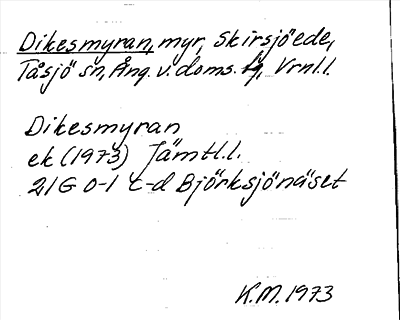 Dikesmyran, myr, Skirsjöede,
Tåsjö sn, Ång. v. doms. lg, Vrnl.l.
Dikesmyran
ek (1973) Jämtl.l.
21G 0-1 c-d Björksjönäset
K.M. 1973